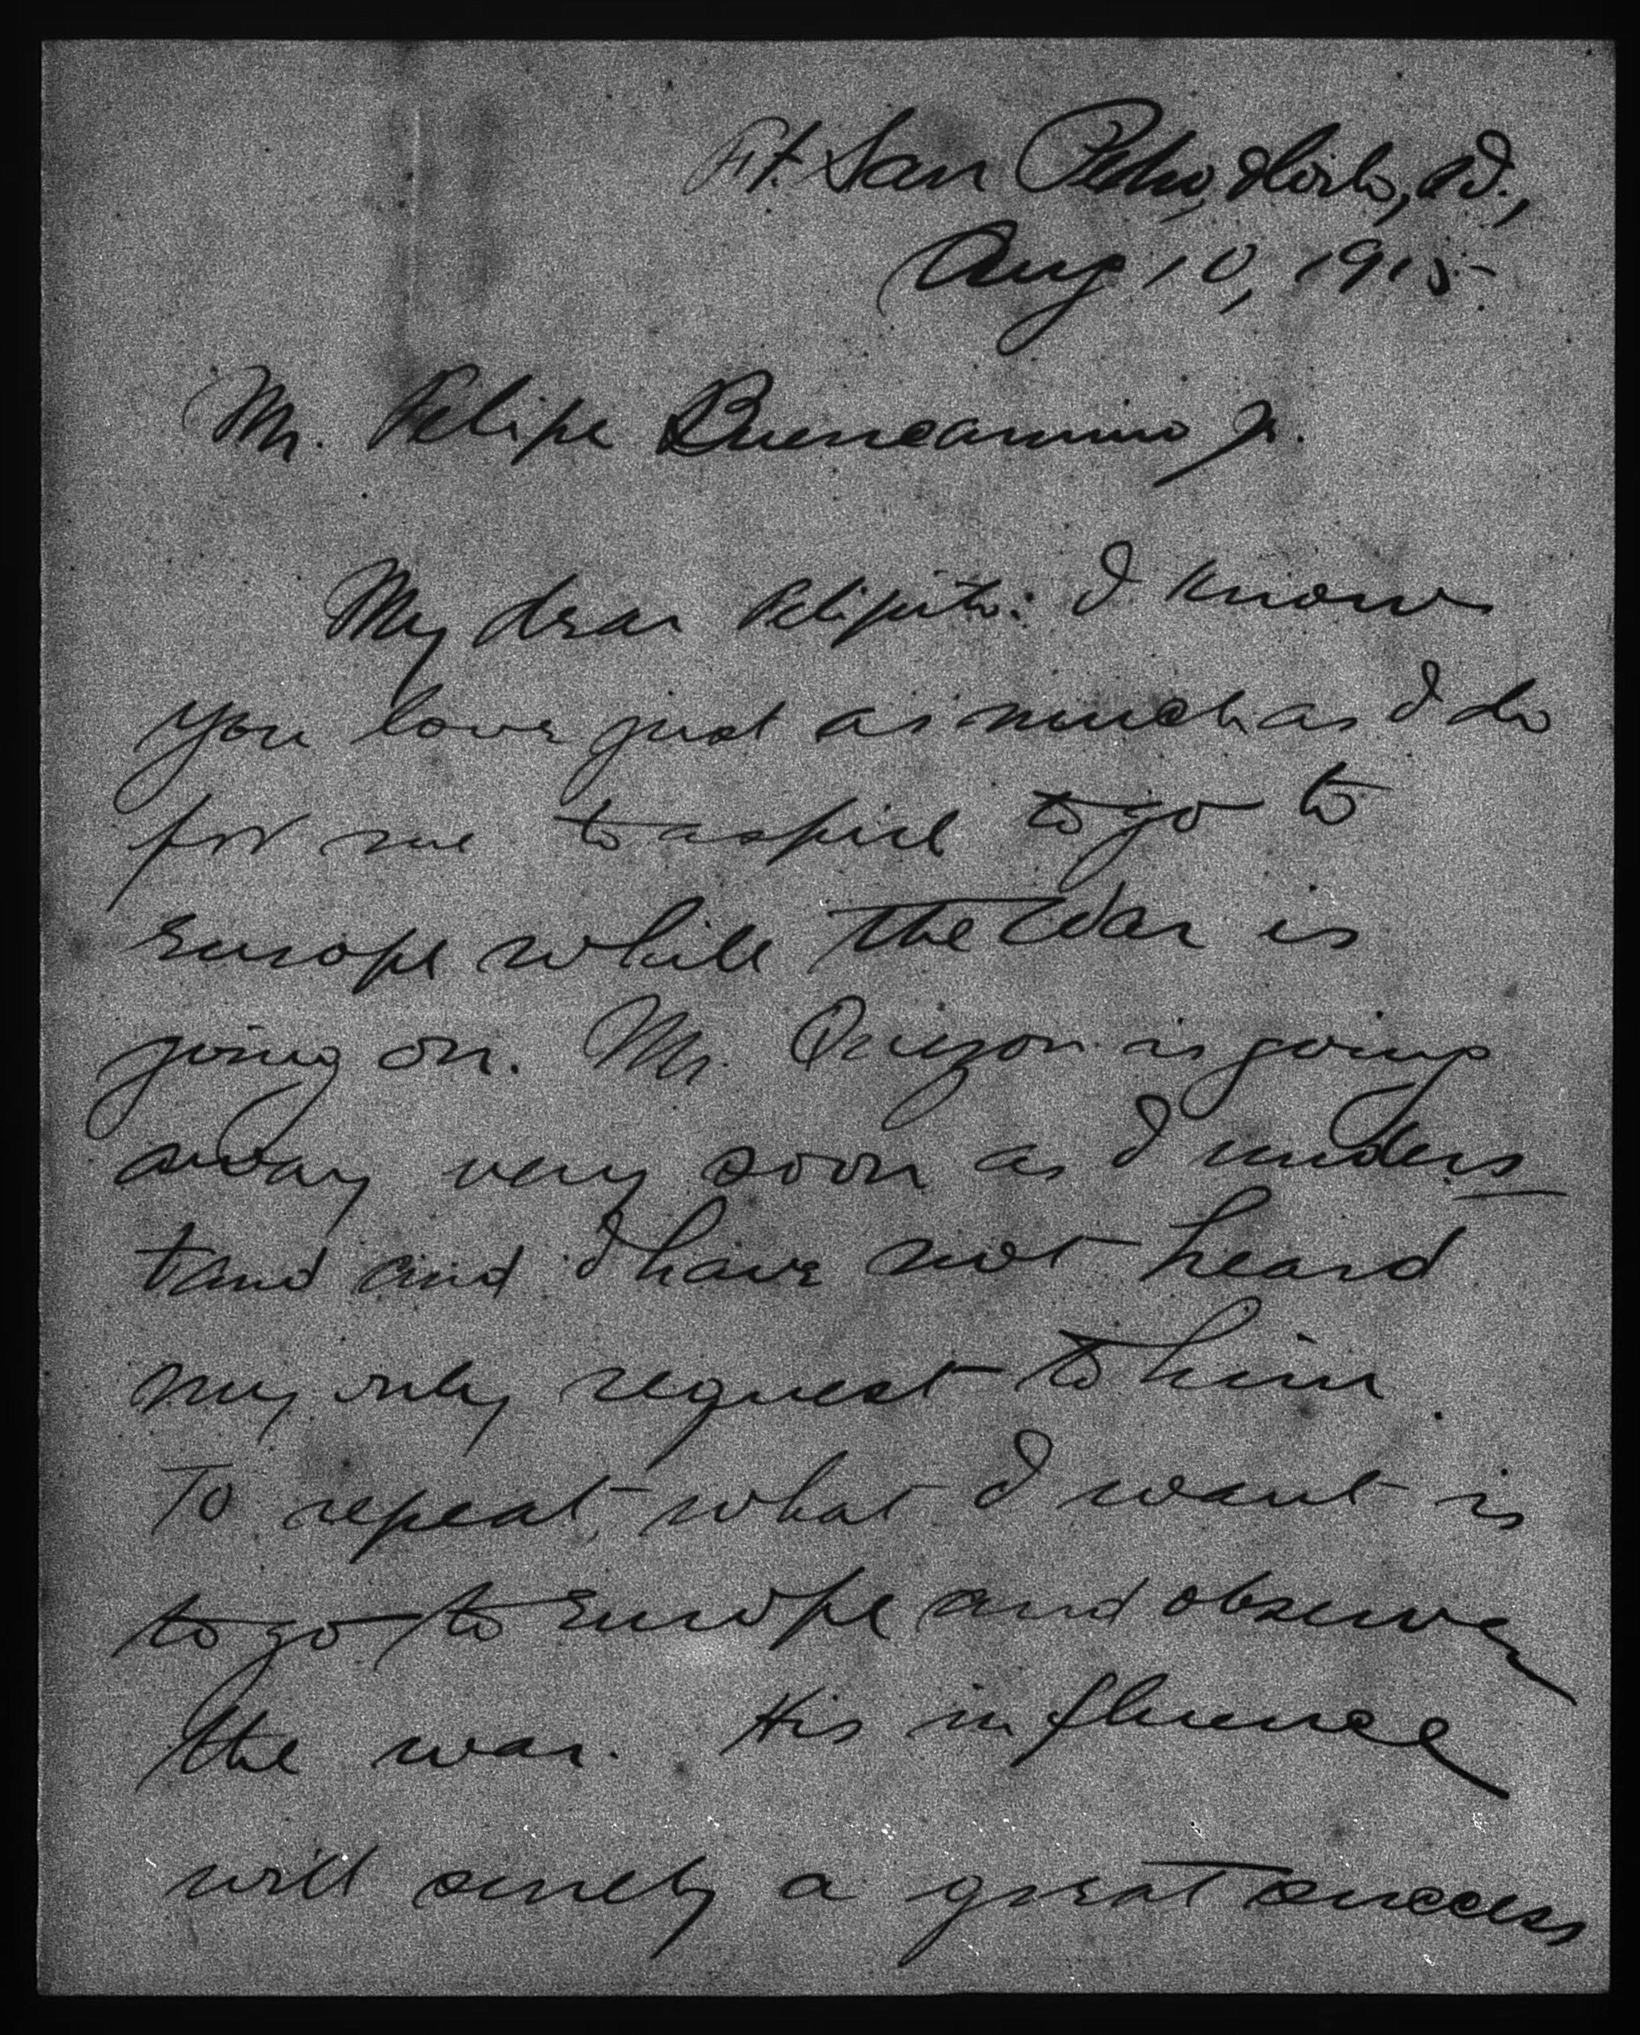 Ft. San Pedro, Iloilo, P.I.,
Aug 10, 1915
Mr. Felipe Buencamino Jr.
My dear Felipito: I know
you love just as much as I do
for me to aspire to go to
Europe while the War is
going on. Mr. Quezon is going
away very soon as I unders
tand and I have not heard
my only request to him.
To repeat, what I want is
to go to Europe and observe
the war. His influence
will surely a great success